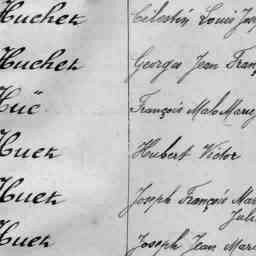 Huchet Célestin Louis Jos
Huchet Georges Jean Franç
Huë François Malo Marie
Huet Hubert Victor
Huet Joseph François Mar
Juli
Huet Joseph Jean Mari